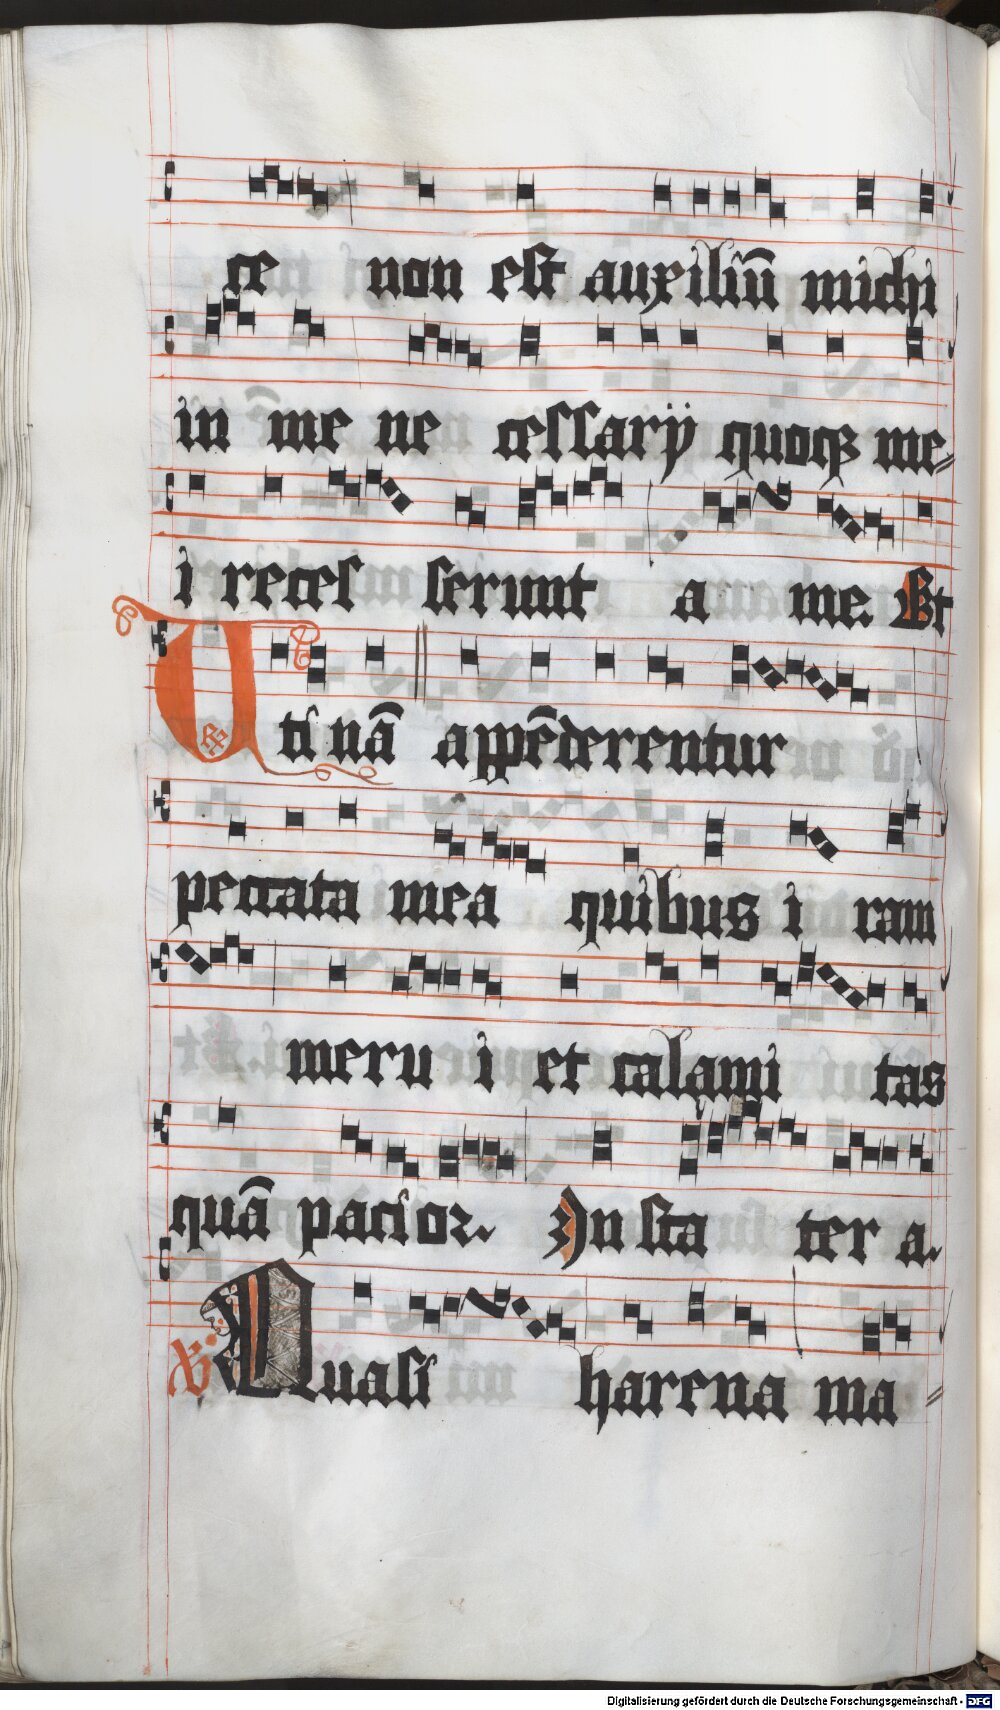 ce non est auxiliū michi
in me ne cessarÿ quoqꝫ me⸗
i reces serunt a me. Et
Uti nā appēderentur
peccata mea quibus i ram
meru i et calami tas
quā paci or. In sta ter a.
℣ Quasi harena ma⸗
Digitalisierung gefördert durch die Deutsche Forschungsgemeinschaft - DFG